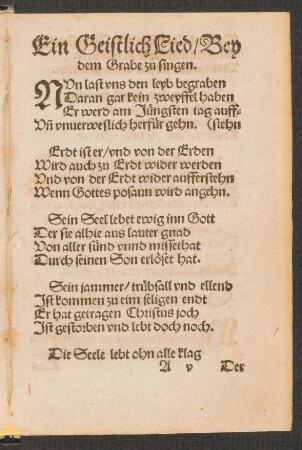 Ein Geistlich Lied / Bey
dem Grabe zu singen.
NUn last vns den leyb begraben
Daran gar kein zweyffel haben
Er werd am Jüngsten tag auff-
Vñ vnuerweslich herfür gehn. (stehn
Erdt ist er / vnd von der Erden
Wird auch zu Erdt wider werden
Vnd von der Erdt wider aufferstehn
Wenn Gottes posaun wird angehn.
Sein Seel lebet ewig inn Gott
Der sie alhie aus lauter gnad
Von aller sünd vnnd missethat
Durch seinen Son erlöset hat.
Sein jammer / trübsall vnd ellend
Ist kommen zu eim seligen endt
Er hat getragen Christus joch
Ist gestorben vnd lebt doch noch.
Die Seele lebt ohn alle klag
A v Der